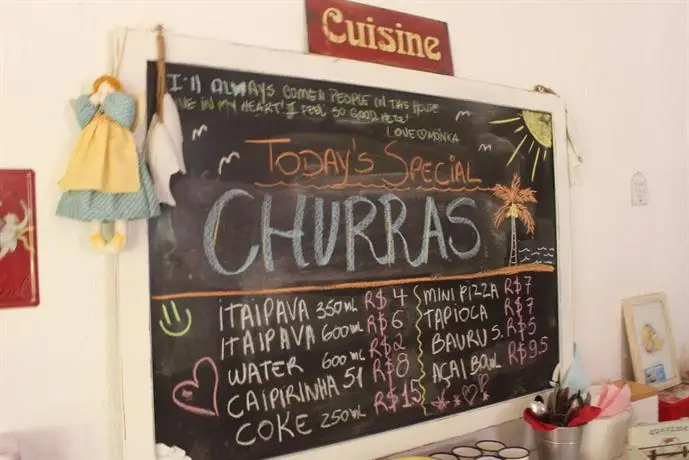 Cuisine
I'll ALWAYS COME!! PEOPLE IN THIS HOUSE
IN MY HEART! I FEEL SO GOOD HERE!
LOVE MÔNIKA
TODAY'S SPECIAL
CHURRAS
ITAIPAVA 350ML R$ 4
ITAIPAVA 600ML R$ 6
WATER 600ML R$ 2
CAIPIRINHA 51 R$ 8
COKE 250ML R$ 15
MINI PIZZA R$ 7
TAPIOCA R$ 7
BAURU S. R$ 5
AÇAI BOWL R$ 9.5